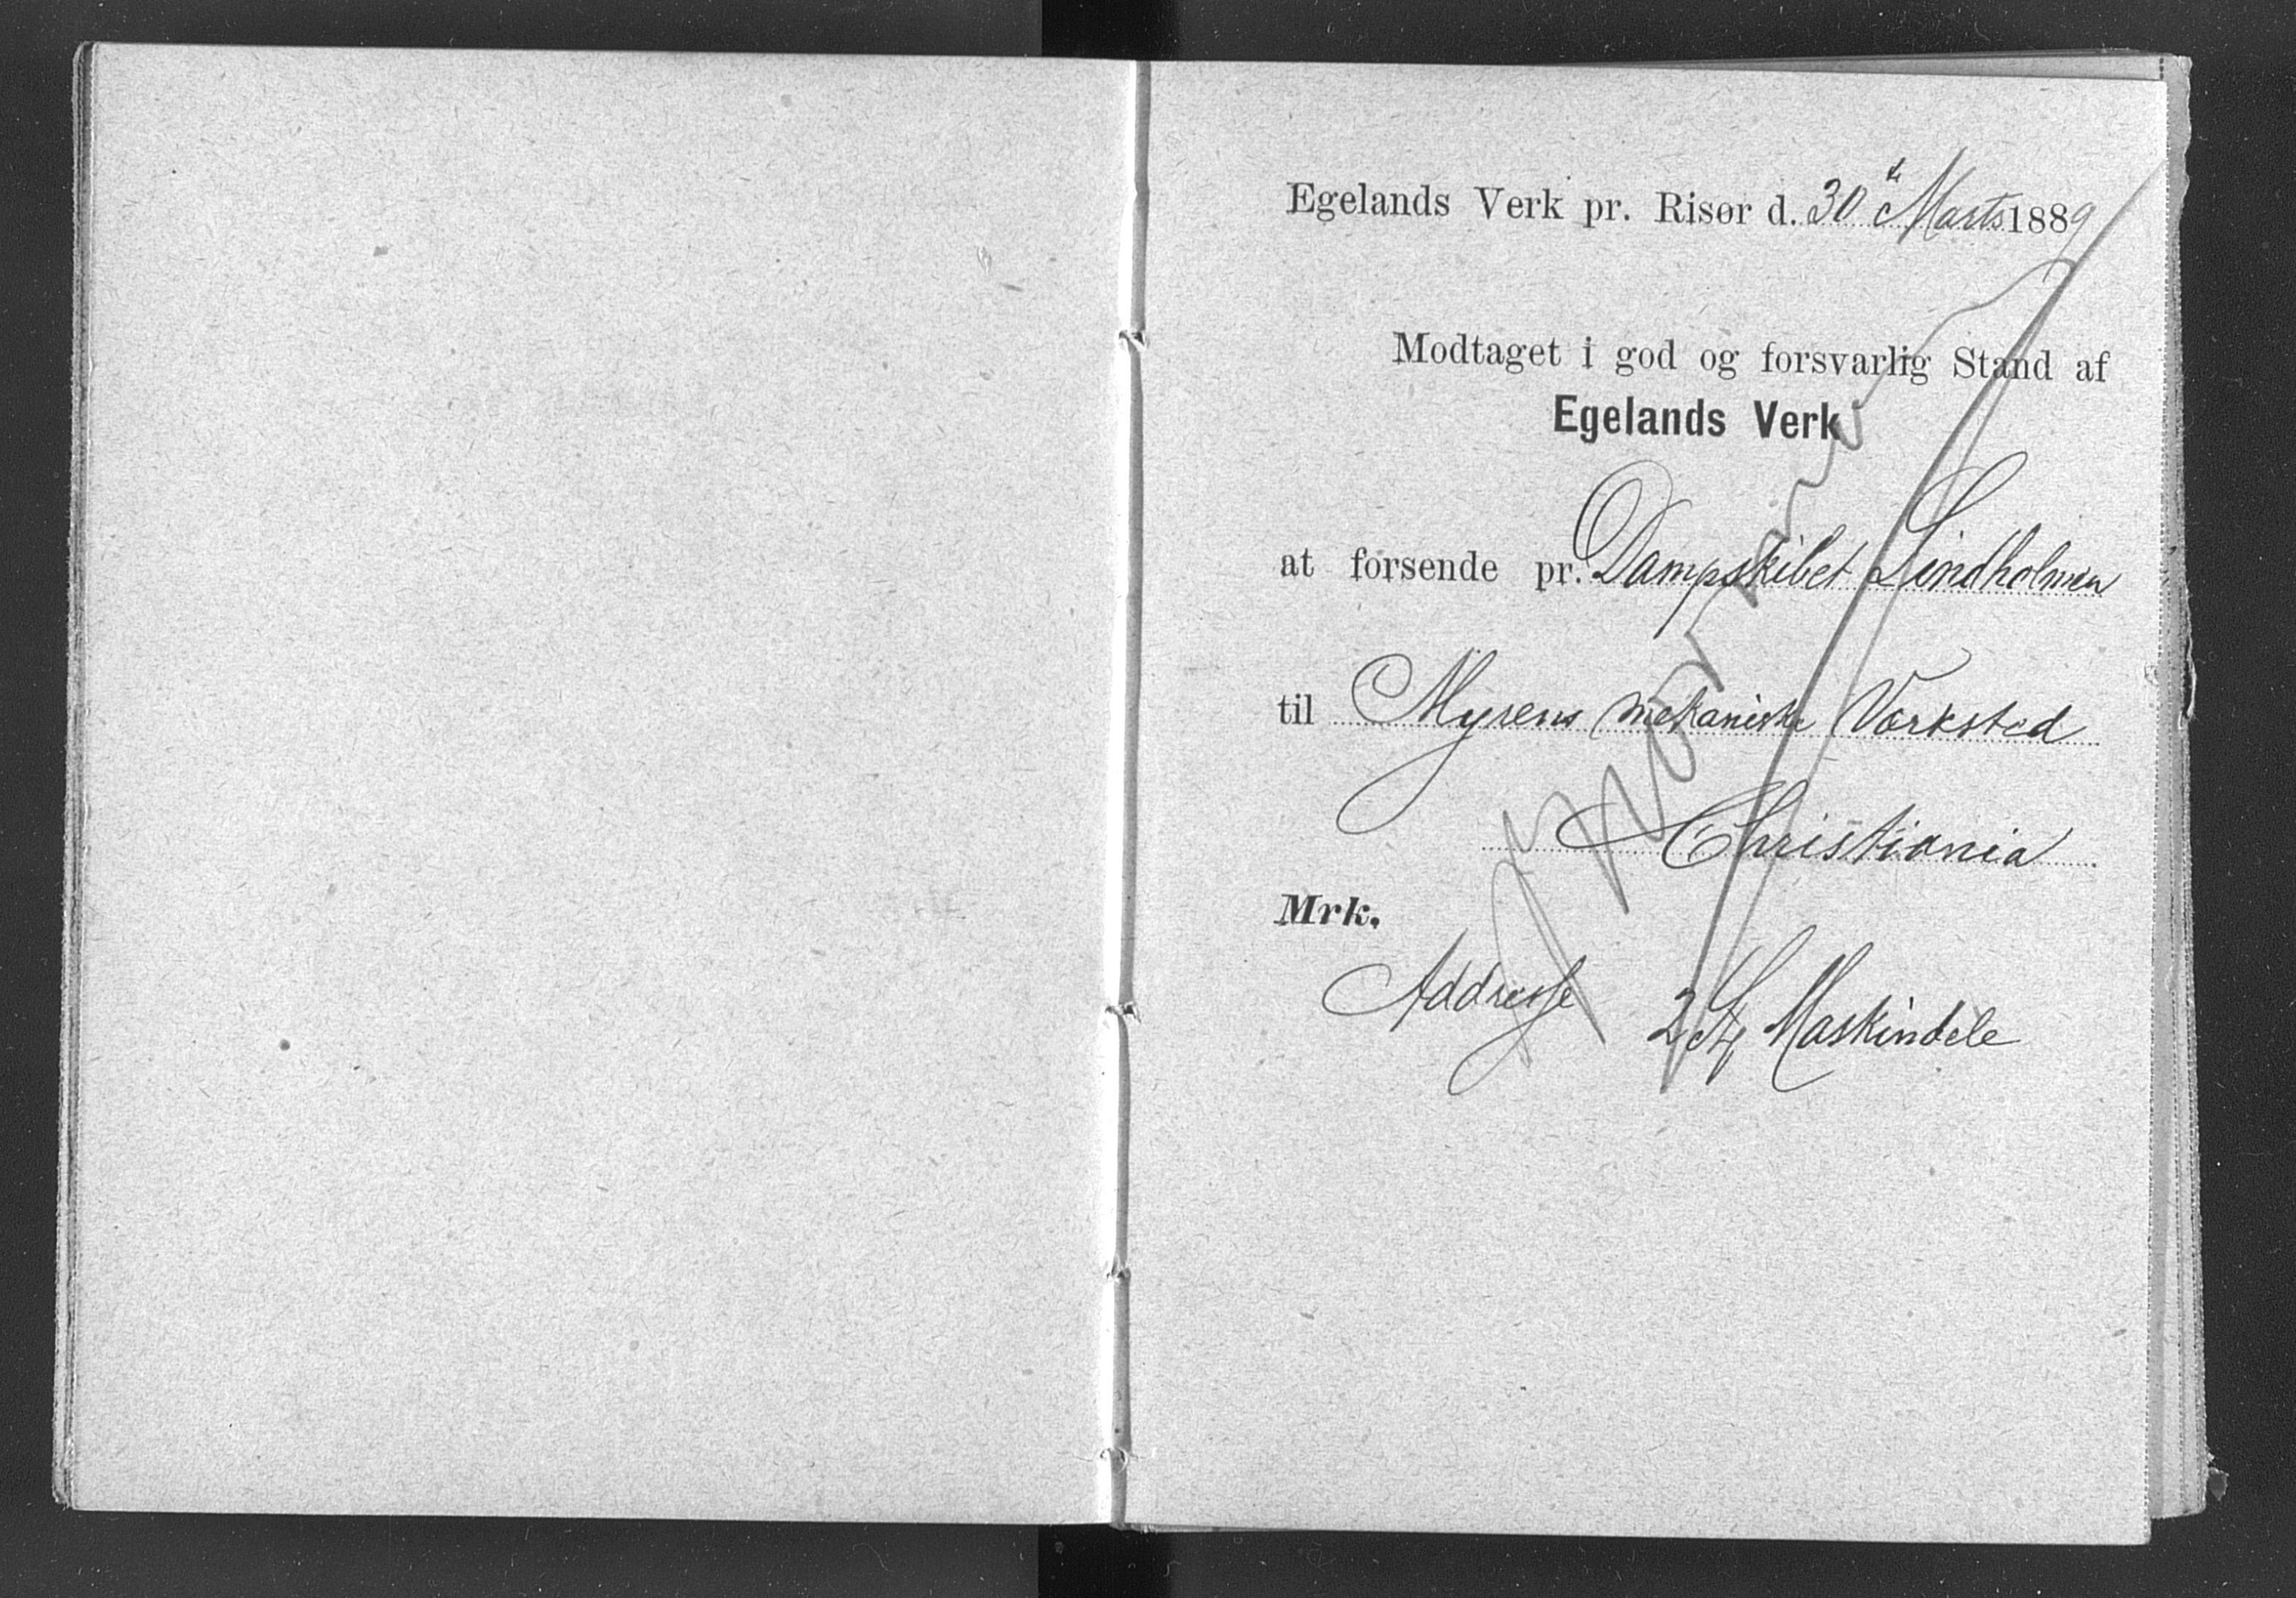 Egelands Verk pr. Risør d. 30te Marts 1889
Modtaget i god og forsvarlig Stand af
Egelands Verk
at forsende pr. Dampskibet Lindholmen
til Myrens mekaniske Værksted
Christiania
Mrk.
Addresse 2 St Maskindele